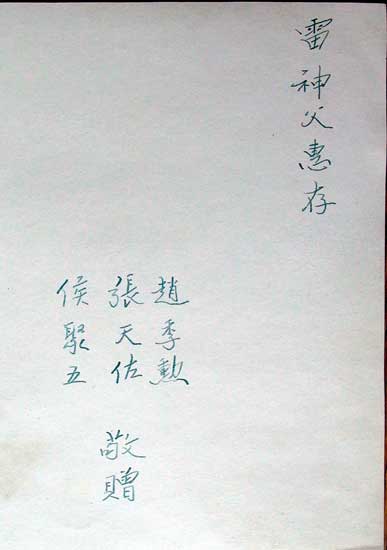 雷神父惠存
趙季勲
張天佐
侯聚五
敬贈